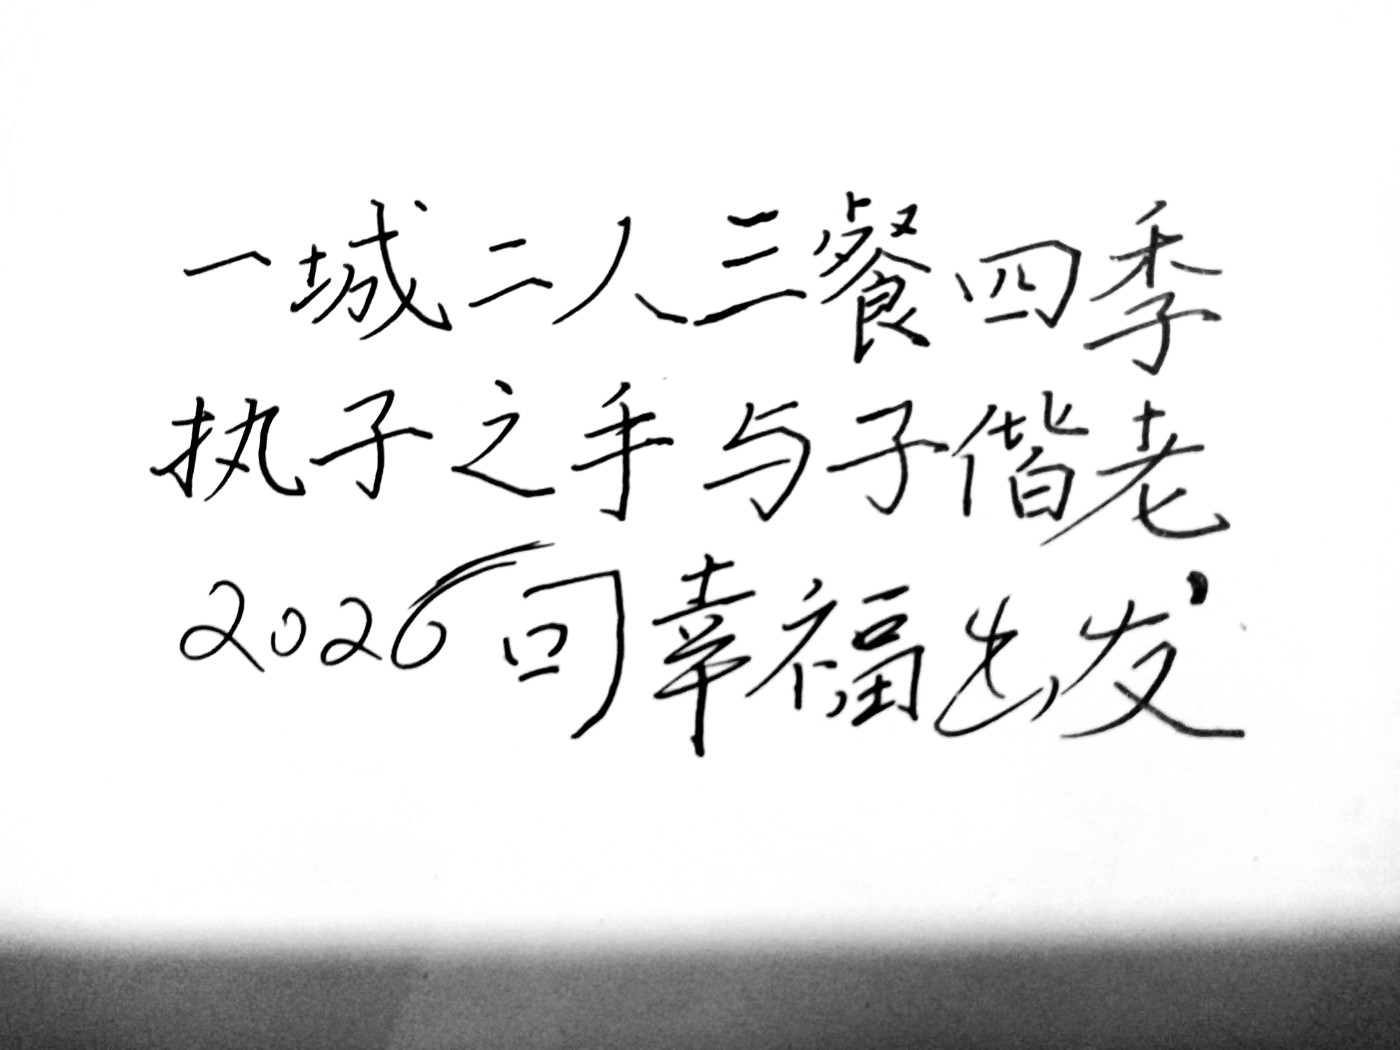 一城二人三餐四季
执子之手与子偕老
2026向幸福出发